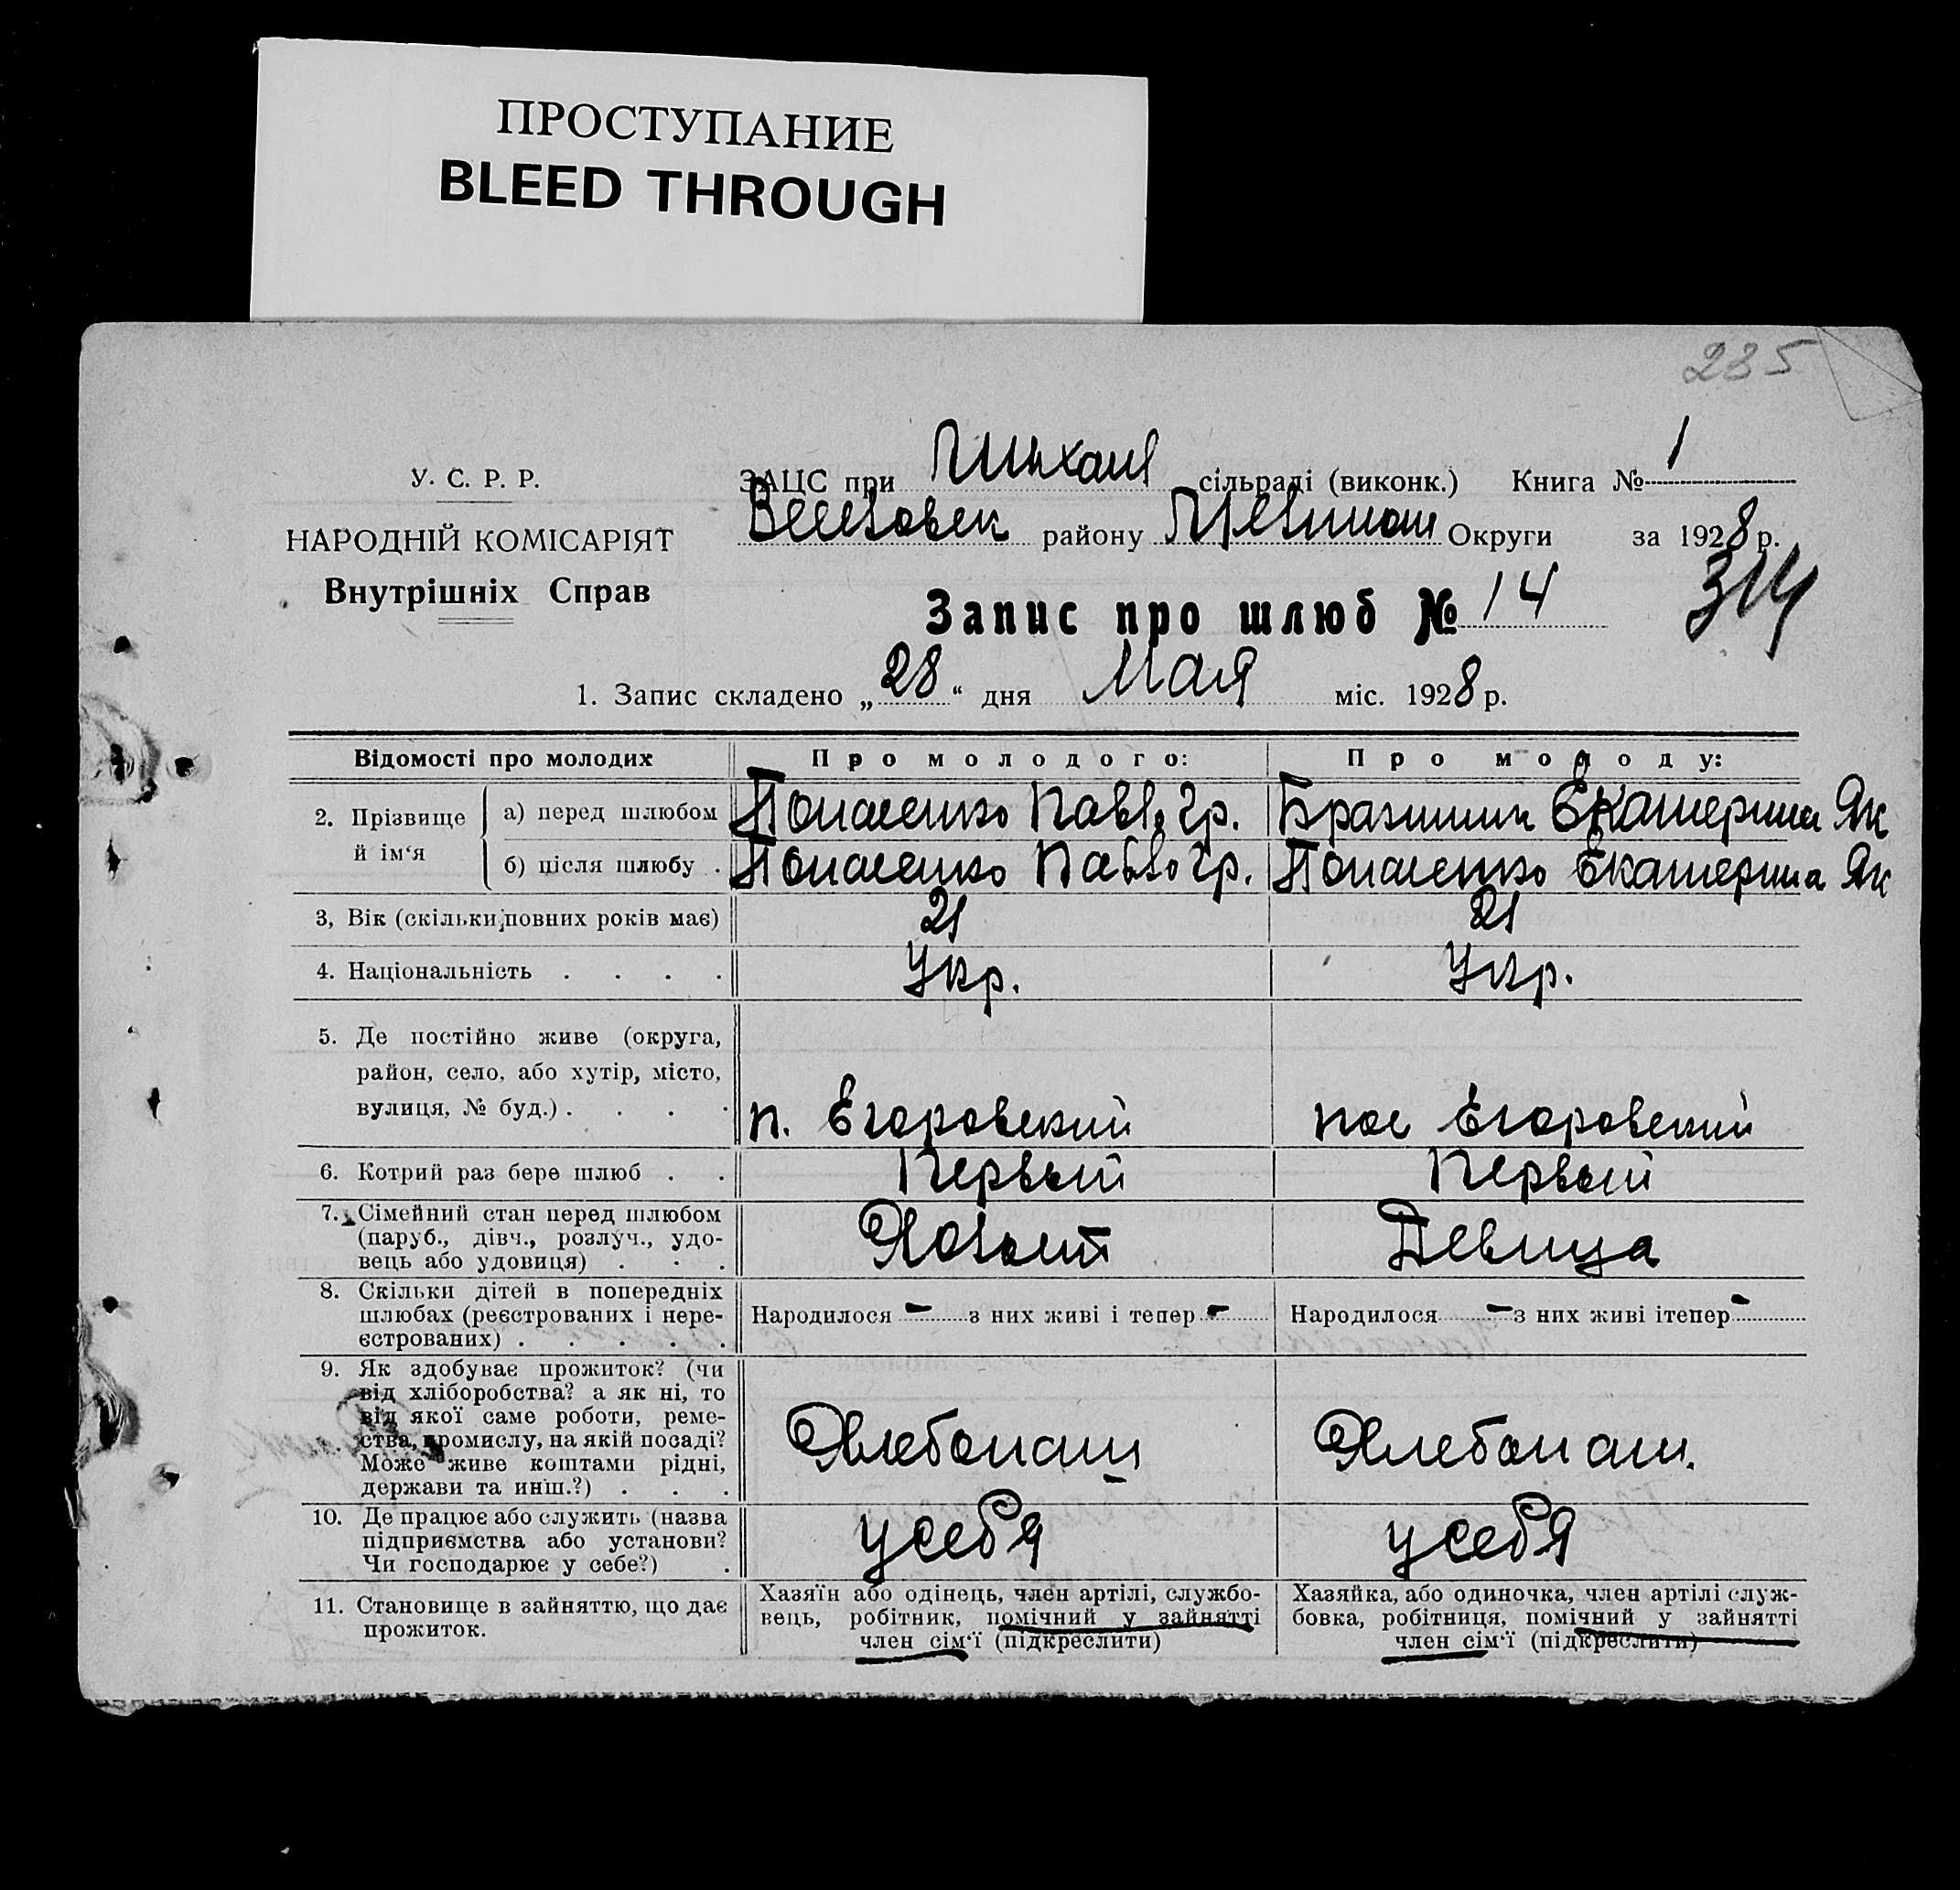 ПРОСТУПАНИЕ
BLEED THROUGH
285
У. С. Р. Р.
НАРОДНІЙ КОМІСАРІЯТ
Внутрішніх Справ
ЗАЦС при сільраді (виконк.) Книга № 1
району Округи за 1928 р.
314
Запис про шлюб № 14
1. Запис складено „28“ дня Мая міс. 1928 р.
Відомості про молодих
Про молодого:
Про молоду:
2. Прізвище й ім‘я
а) перед шлюбом
Гр.
Екатерина Як
б) після шлюбу .
Гр.
Екатерина Як
3, Вік (скільки повних років має)
21
21
4. Національність . . . .
Укр.
Укр.
5. Де постійно живе (округа,
район, село, або хутір, місто,
вулиця, № буд.) . . . .
п. Егоровский
пос Егоровский
6. Котрий раз бере шлюб . .
Первый
Первый
7. Сімейний стан перед шлюбом
(паруб., дівч., розлуч., удо-
вець або удовиця) . . .
Холост
Девица
8. Скільки дітей в попередніх
шлюбах (реєстрованих і нере-
єстрованих) . . . . .
Народилося – з них живі і тепер –
Народилося – з них живі ітепер –
9. Як здобуває прожиток? (чи
від хліборобства? а як ні, то
від якої саме роботи, реме-
ства, промислу, на якій посаді?
Може живе коштами рідні,
держави та инш.?) . . .
Хлебопаш
Хлебопаш.
10. Де працює або служить (назва
підприємства або установи?
Чи господарює у себе?) .
у себя
у себя
11. Становище в зайняттю, що дає
прожиток.
Хазяїн або одінець, член артілі, службо-
вець, робітник, помічний у зайнятті
член сім‘ї (підкреслити)
Хазяйка, або одиночка, член артілі служ-
бовка, робітниця, помічний у зайнятті
член сім‘ї (підкреслити)